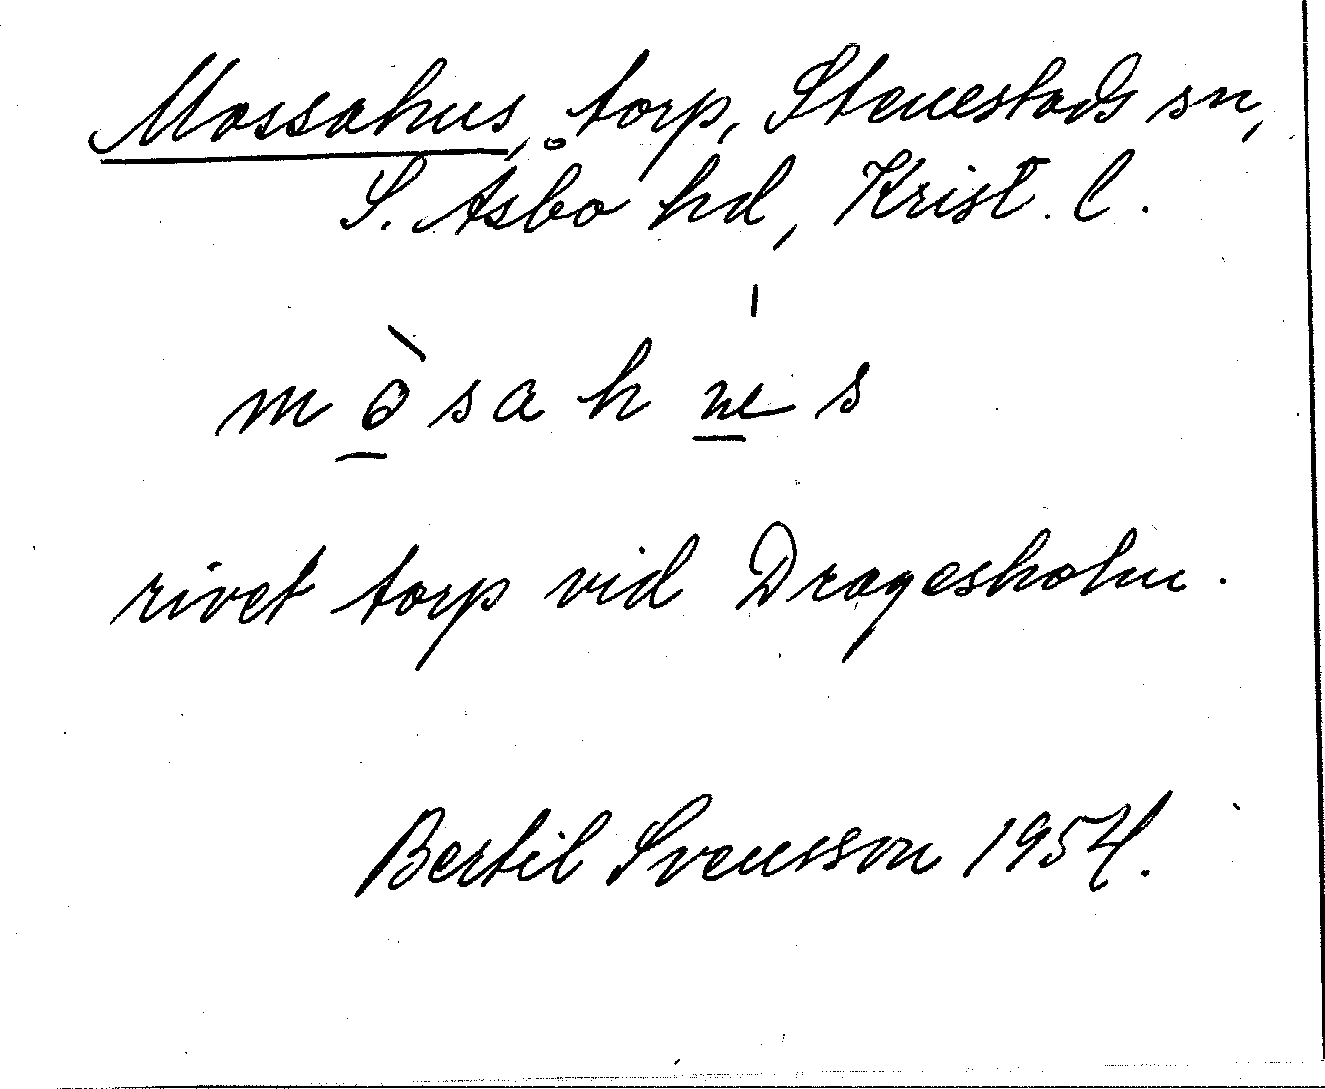 Mossahus, torp, Stenestads sn,
S. Åsbo hd, Krist. l.
mòsahu̲s
rivet torp vid Dragesholm.
Bertil Svensson 1954.